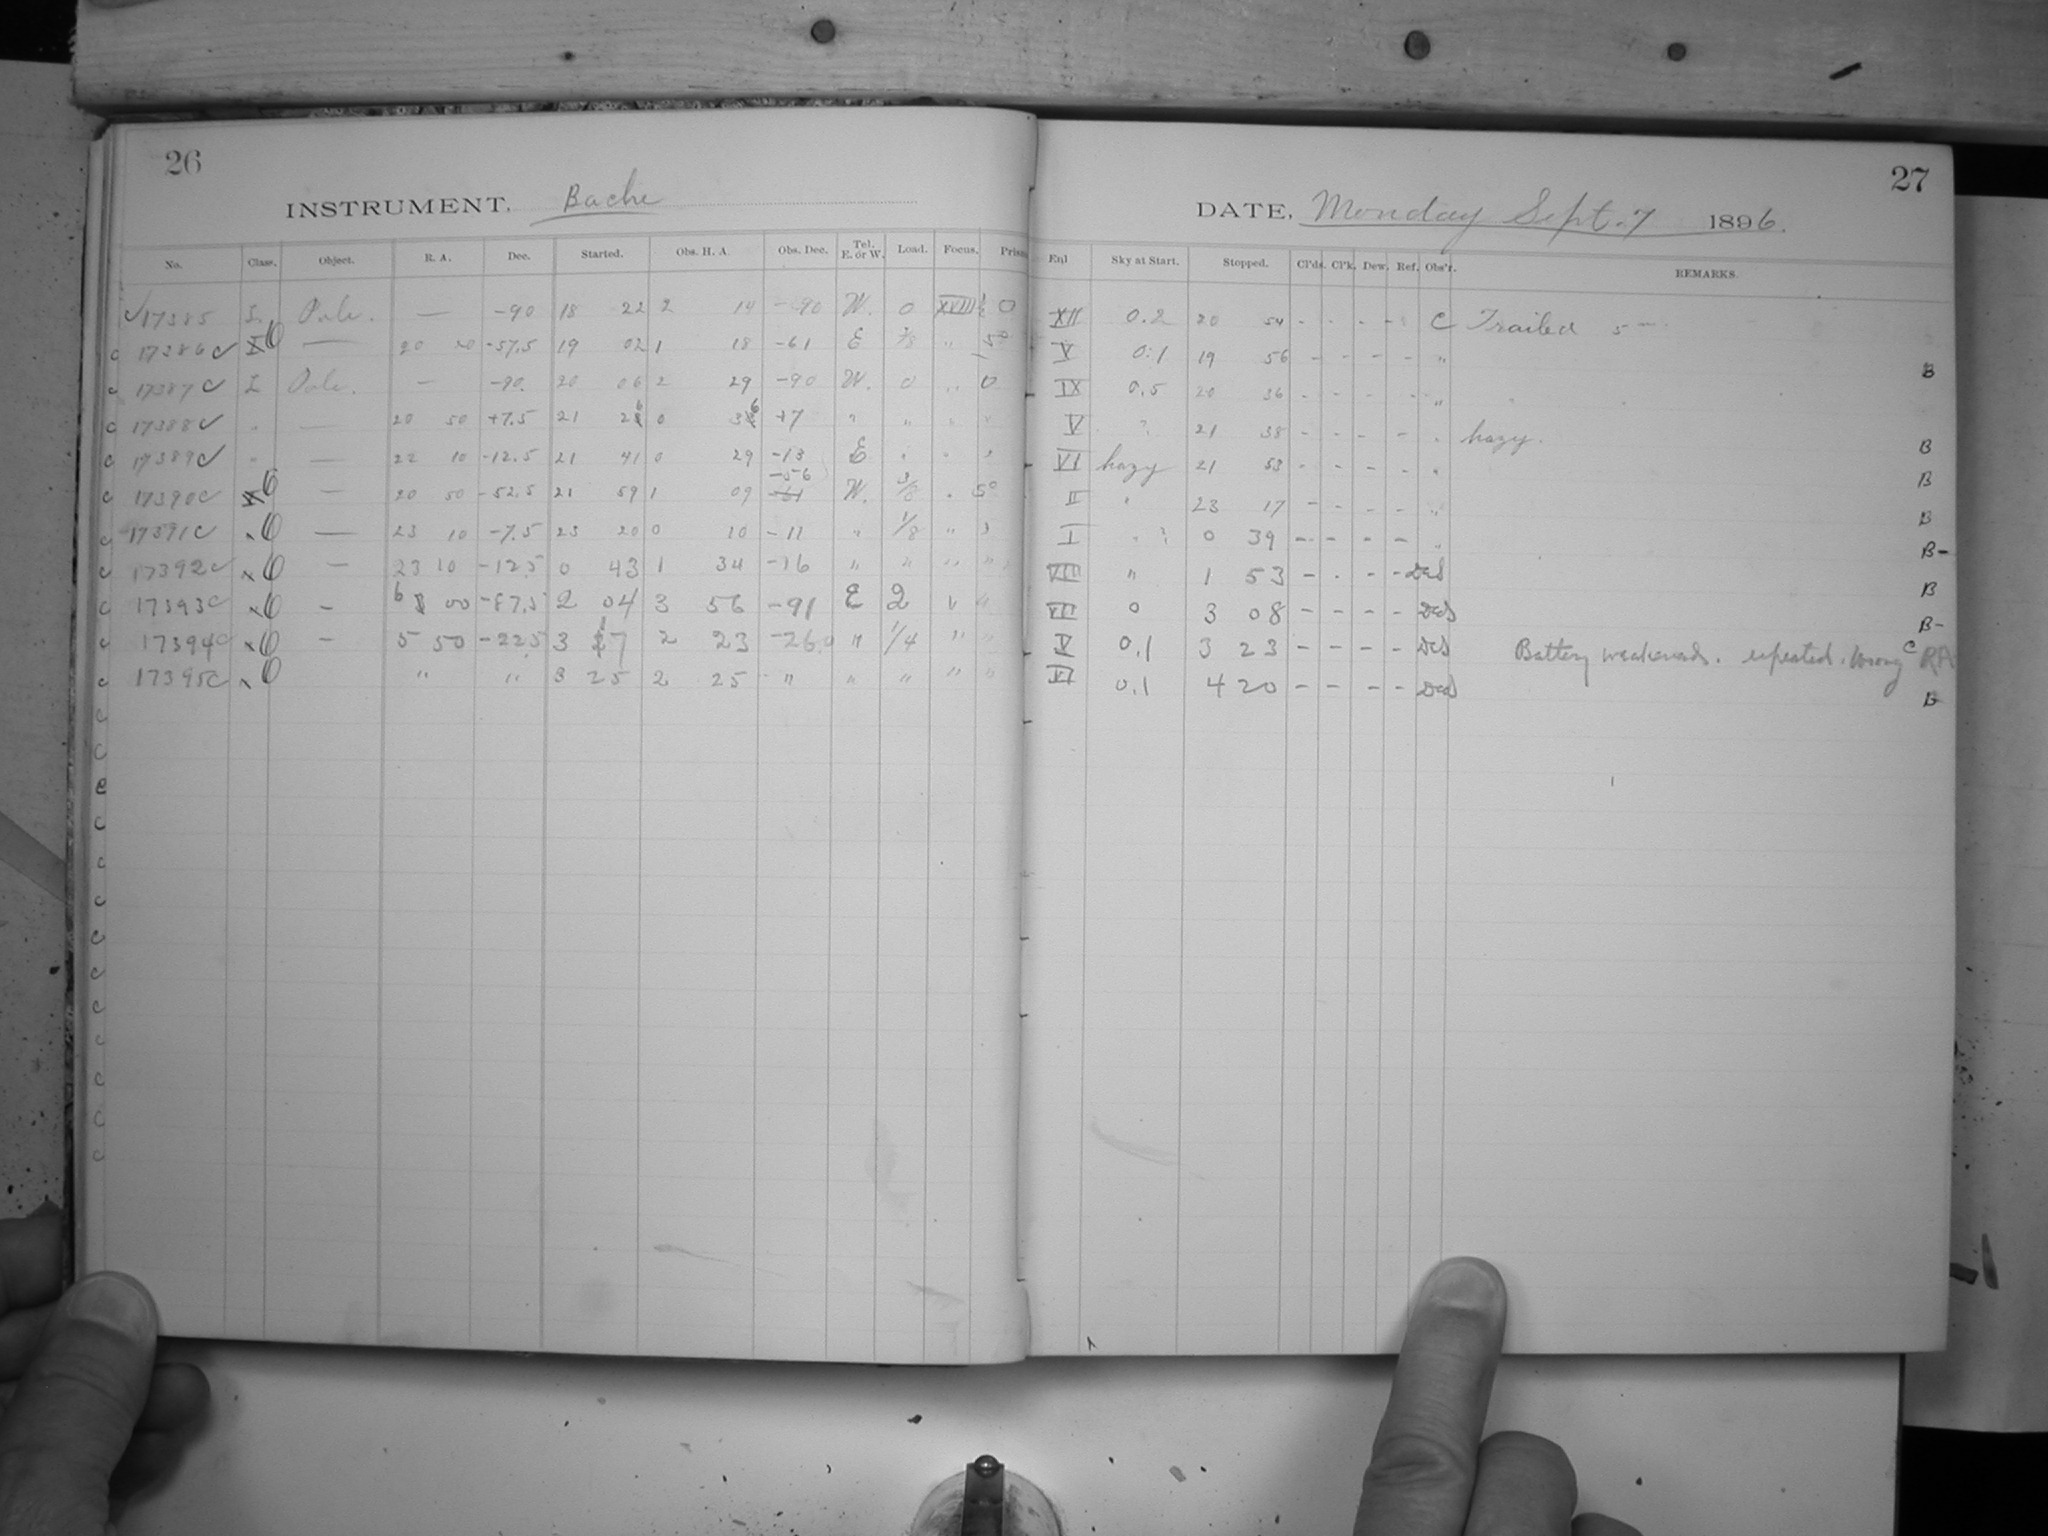 26
INSTRUMENT. Bache
No. Class. Object. R. A. Dec. Started. Obs. H. A. Obs. Dec. Tel. E. or W. Load. Focus. Prism
17385 L Pole. — -90 18 22 2 14 -90 W. 0 XVIII½ 0
C 17386 C X 6 — 20 -57.5 19 02 1 18 -61 E " 5°
C 17387 C L Pole. — -90. 20 06 2 29 -90 W. 0 " 0
C 17388 C " — 20 50 +7.5 21 26 0 36 +7 " " " "
C 17389 C " — 22 10 -12.5 21 41 0 29 -13 E " " "
C 17390 C X 6 — 20 50 -52.5 21 59 1 09 -56 -61 W. 3/8 " 5°
C 17391 C x 6 — 23 10 -7.5 23 20 0 10 -11 " 1/8 " "
C 17392 C x 6 — 23 10 -12.5 0 43 1 34 -16 " " " "
C 17393 C x 6 — 6 00 -87.5 2 04 3 56 -91 E 2 " "
C 17394 C x 6 — 5 50 -22.5 3 17 2 23 -26.0 " 1/4 " "
C 17395 C x 6 " " 3 25 2 25 " " " " "
C
C
C
C
C
C
C
C
C
C
C
C
C
27
DATE, Monday Sept. 7 1896.
Enl Sky at Start. Stopped. Cl'ds. Cl'k. Dew. Ref. Obs'r. REMARKS.
XII 0.2 20 54 - - - - C Trailed 5 m
V 0.1 19 56 - - - - " B
IX 0.5 20 36 - - - - "
V ? 21 38 - - - - " hazy. B
VI hazy 21 53 - - - - " B
II " 23 17 - - - - " B
I " ? 0 39 - - - - " B-
VIII " 1 53 - - - - DeS B
VII 0 3 08 - - - - DeS B-
V 0.1 3 23 - - - - DeS Battery weakened. repeated. Wrong C RA
VI 0.1 4 20 - - - - DeS B